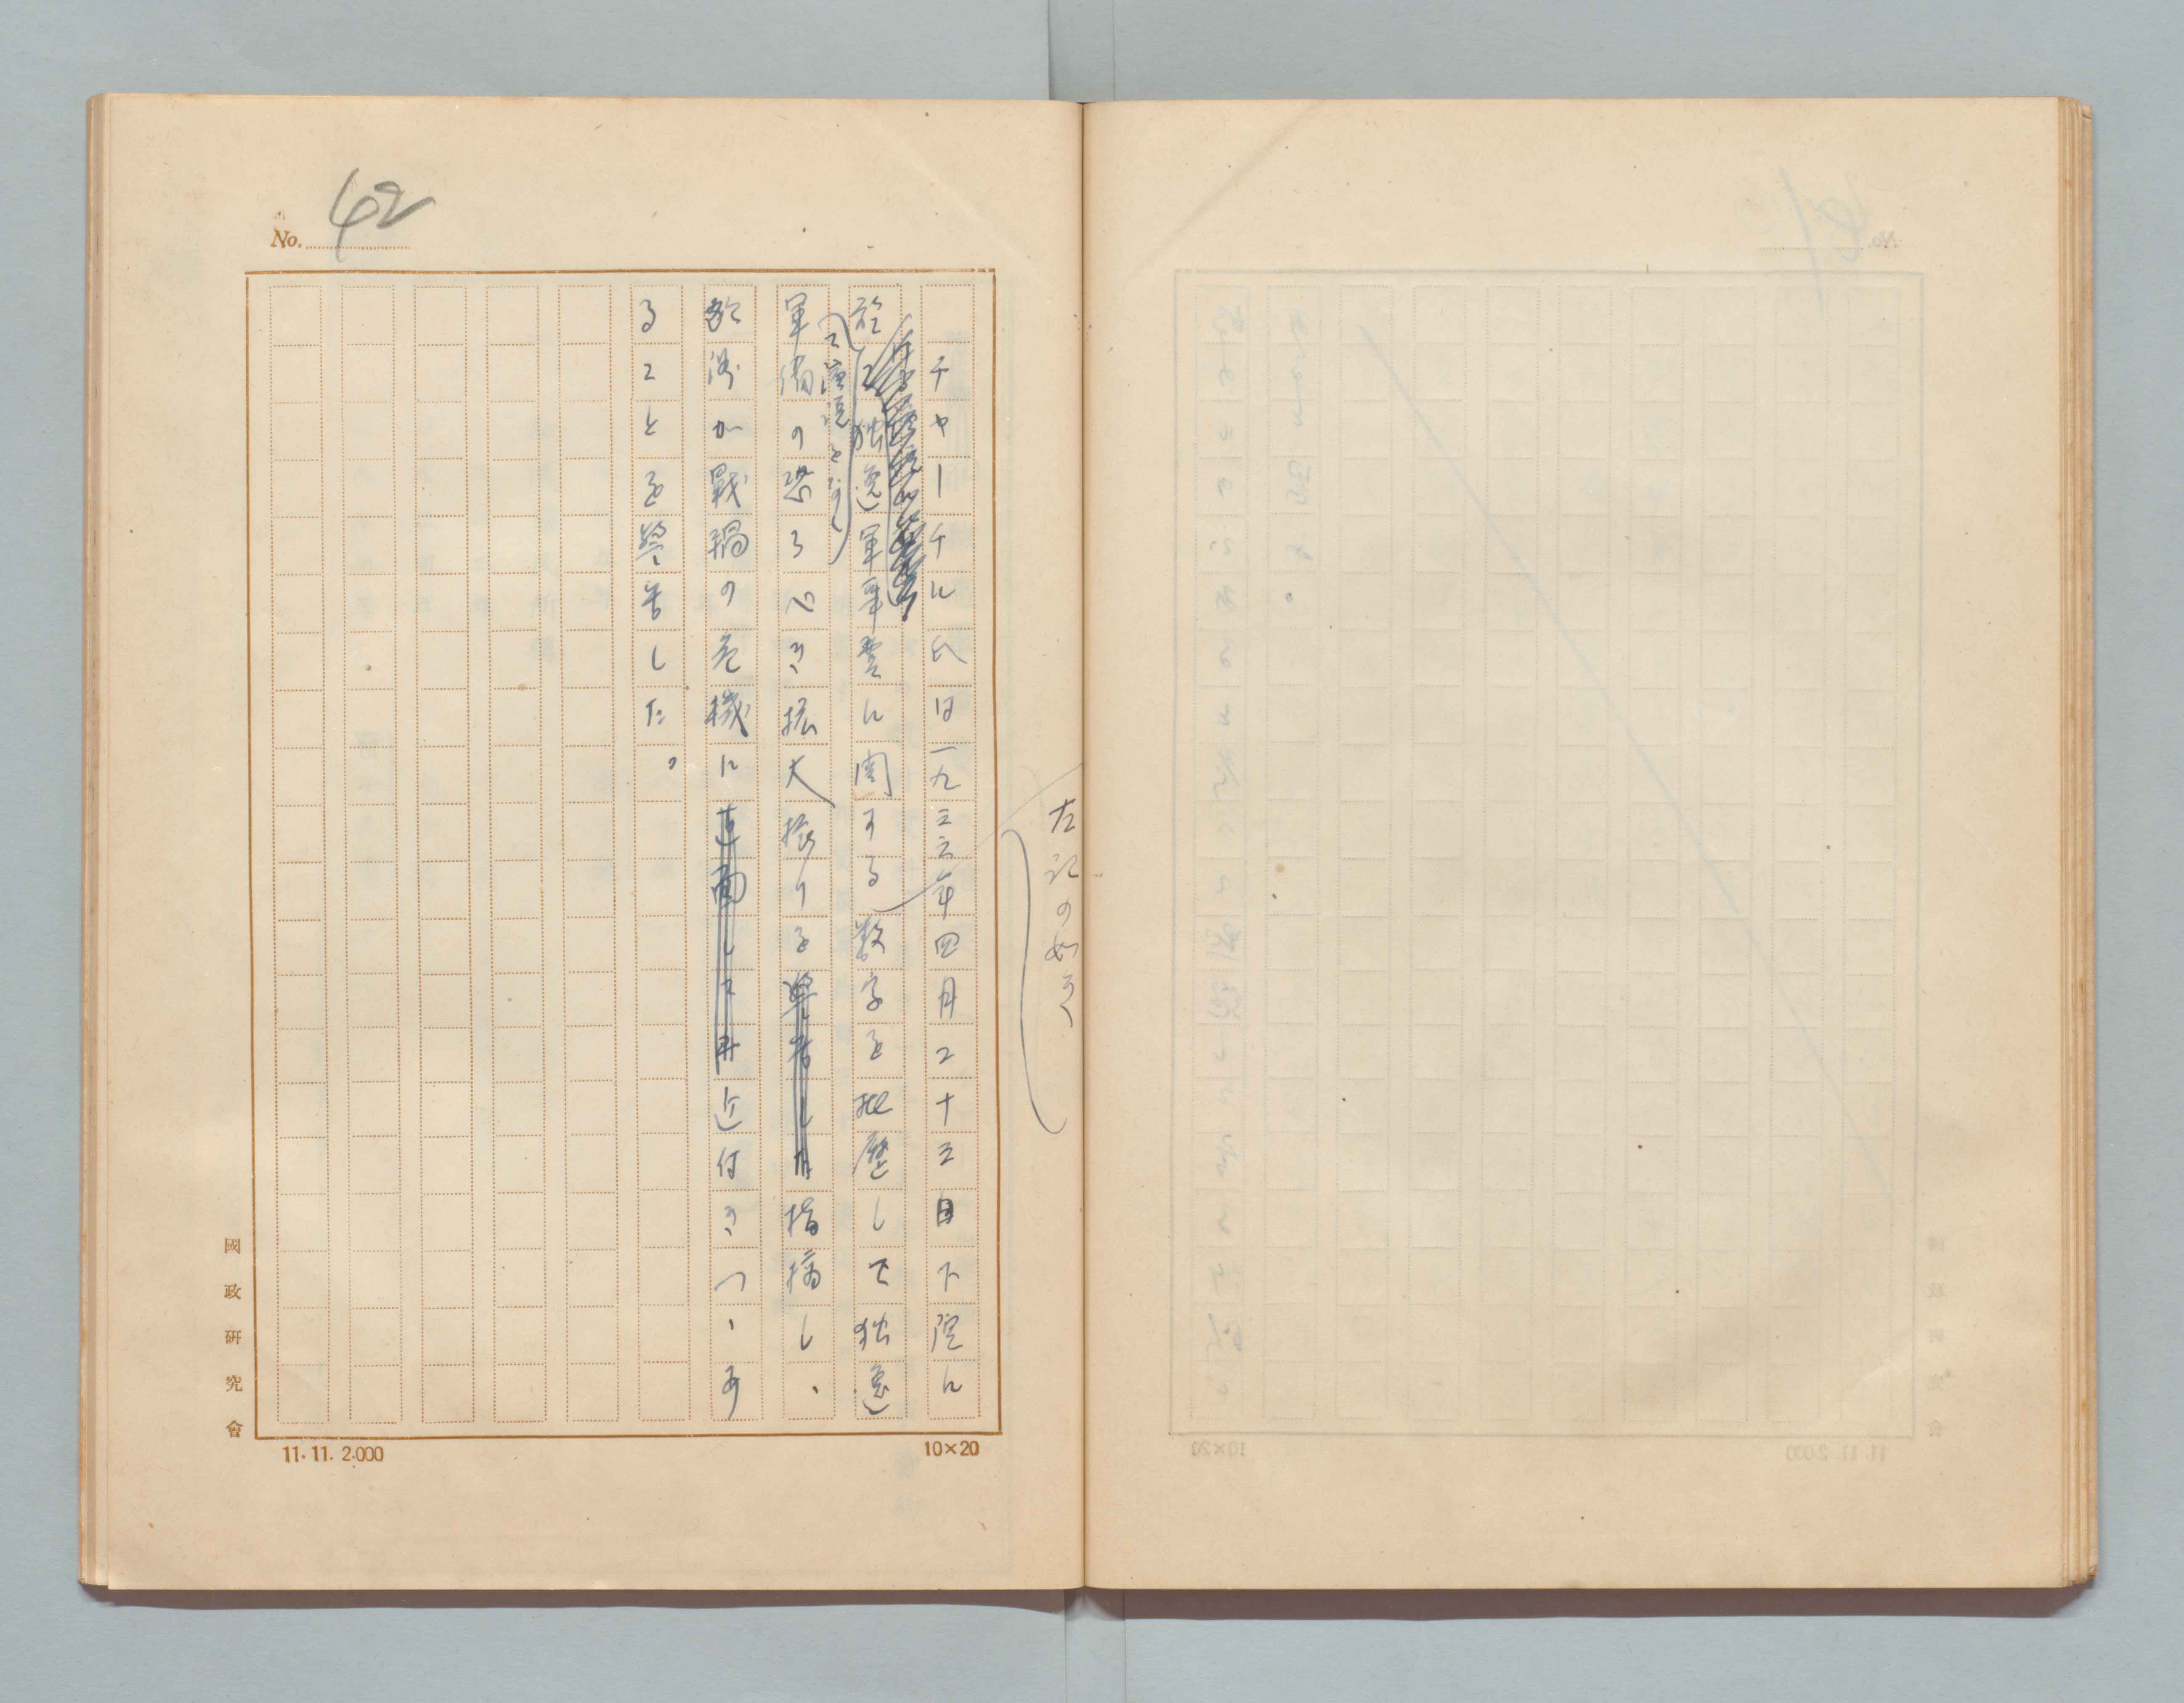 No. 42
チャーチル氏は一九三六年四月二十三日下院に
於て独逸軍事費に関する数字を披歴して独逸
て演説をなし
左記の如き
軍備の恐ろべき拡大振りを警告した指摘し、
欧洲が戦禍の危機に直面して再近付きつゝあ
ることを警告した。
國政研究會
11.11.2.000
10×20